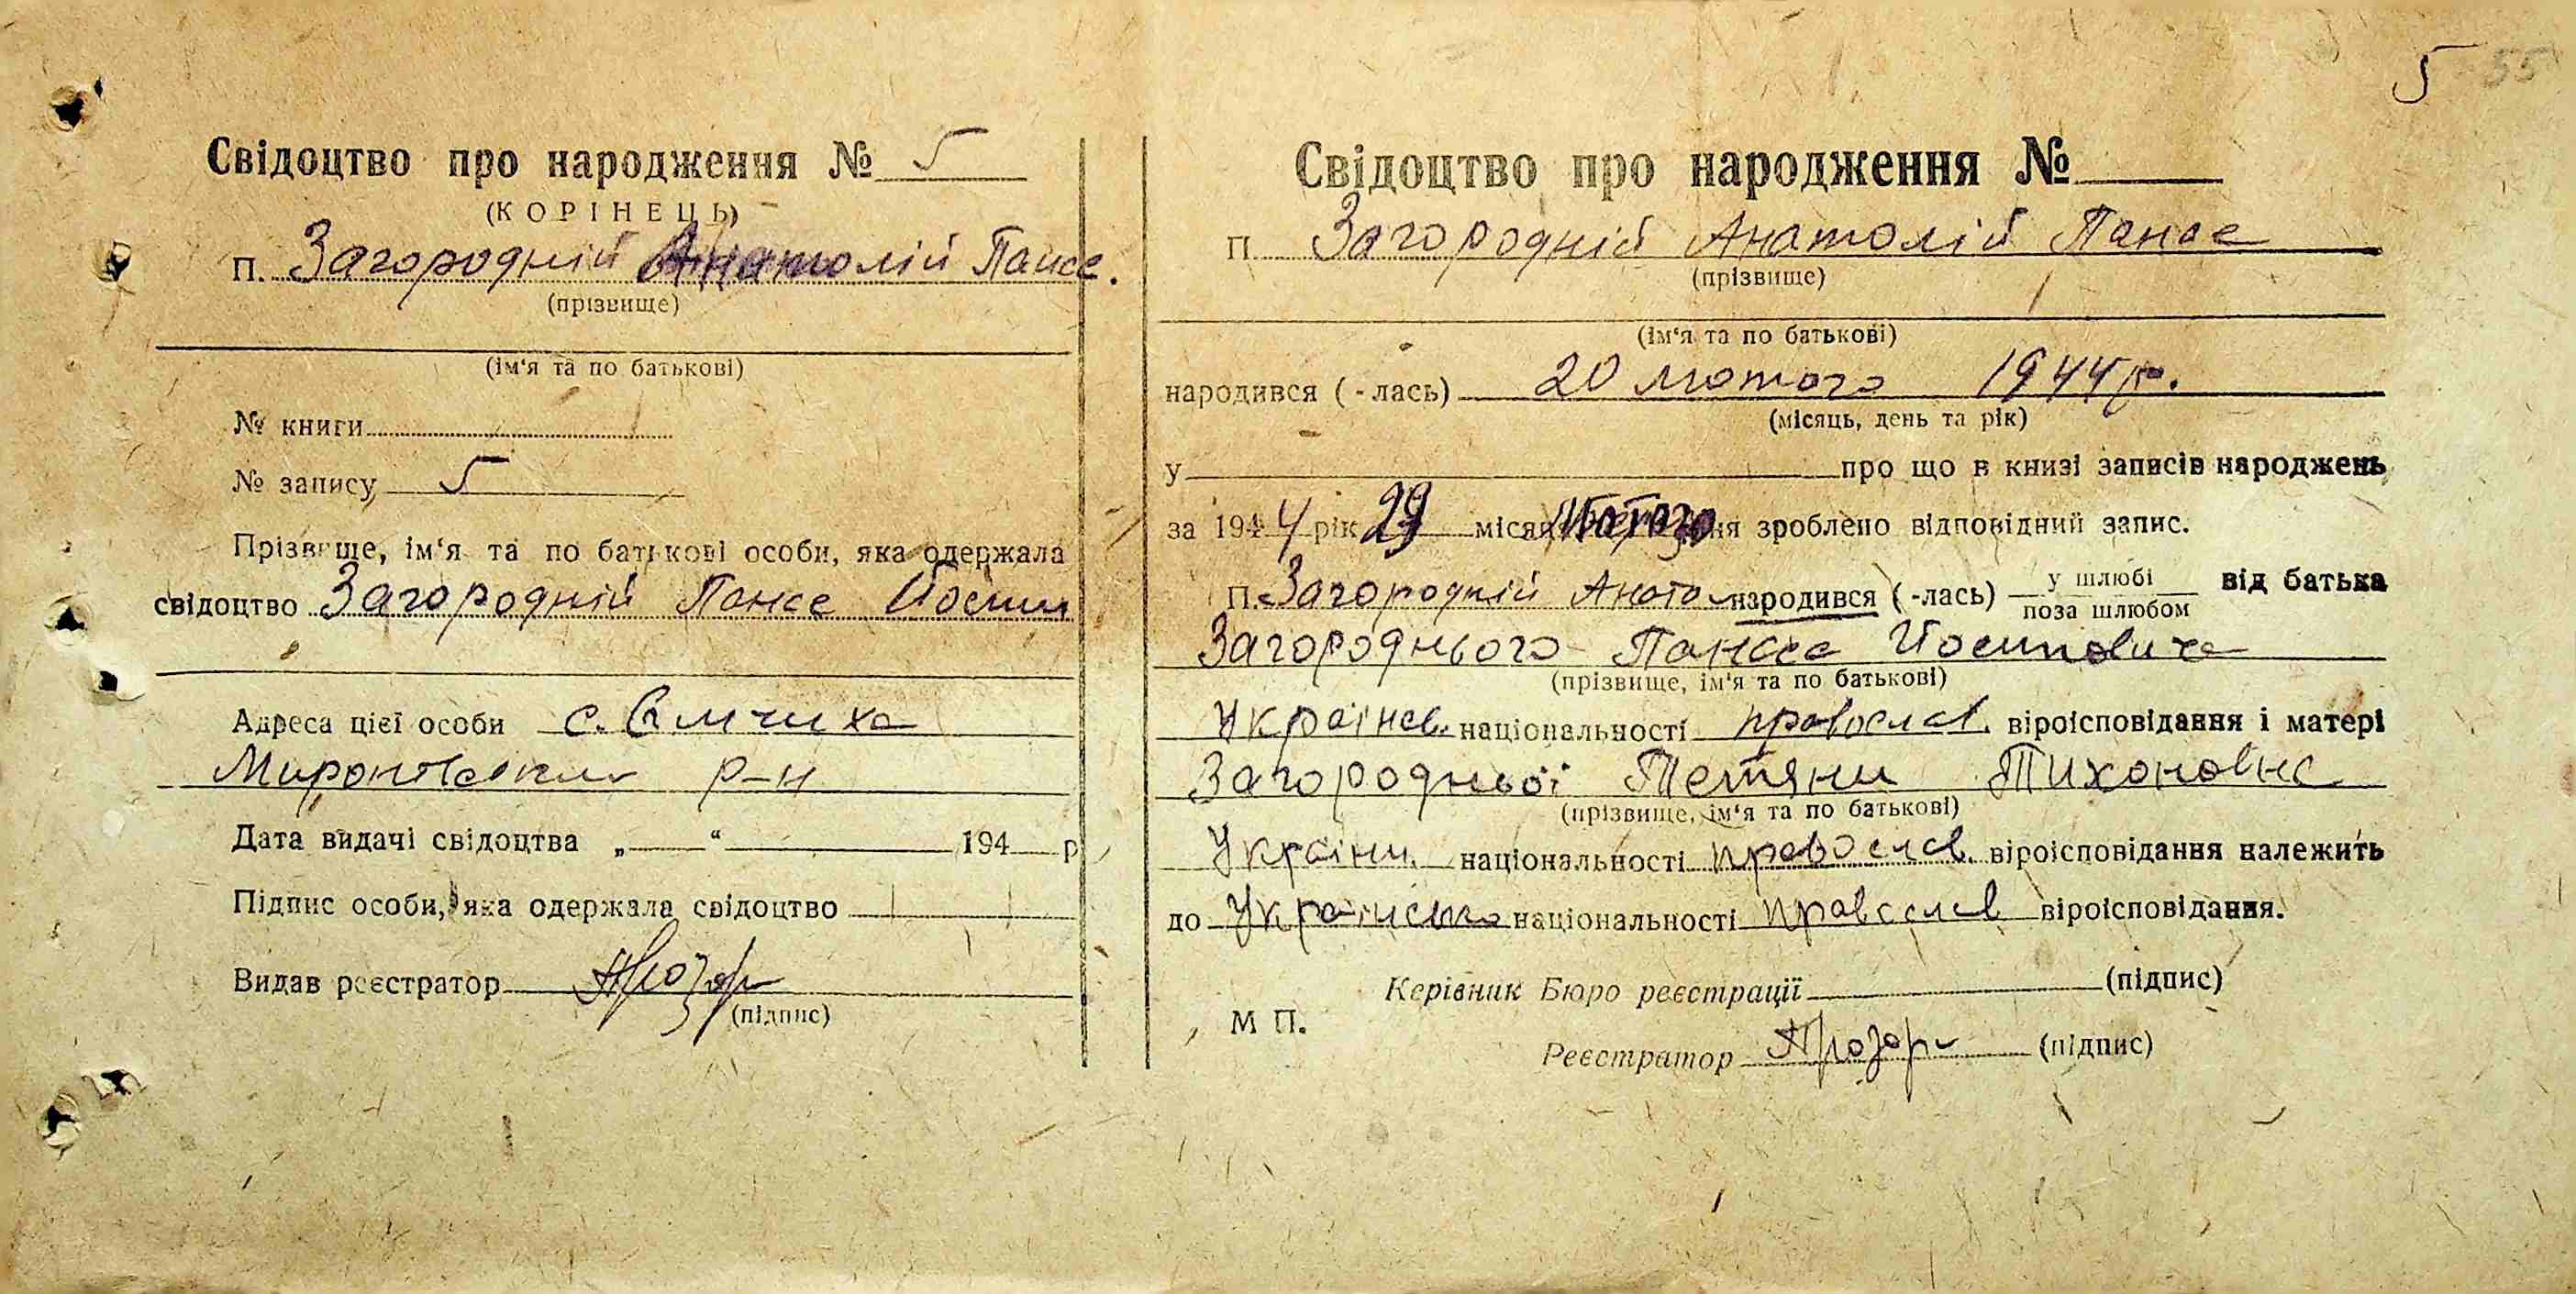 5 55
Свідоцтво про народження № 5
(КОРІНЕЦЬ)
П. Загородній Анатолій Панас.
(прізвище)
(ім'я та по батькові)
№ книги
№ запису 5
Прізвище, ім'я та по батькові особи, яка одержала
свідоцтво Загородній Панас Йосип
Адреса цієї особи с.
р-н
Дата видачі свідоцтва „ “ 194 р
Підпис особи, яка одержала свідоцтво
Видав реєстратор
(підпис)
Свідоцтво про народження №
П. Загородній Анатолій Панас
(прізвище)
(ім'я та по батькові)
народився (-лась) 20 лютого 1944 р.
(місяць, день та рік)
у про що в книзі записів народжень
за 1944 рік 29 місяця Лютого дня зроблено відповідний запис.
П. Загородній Анато народився (-лась) у шлюбі від батька
поза шлюбом
Загороднього Панаса Йосиповича
(прізвище, ім'я та по батькові)
Українс. національності православ. віроісповідання і матері
Загородньої Тетяни Тихоновна
(прізвище, ім'я та по батькові)
Україн. національності православ. віроісповідання належить
до Українсько національності православ віроісповідання.
Керівник Бюро реєстрації (підпис)
М П.
Реєстратор (підпис)